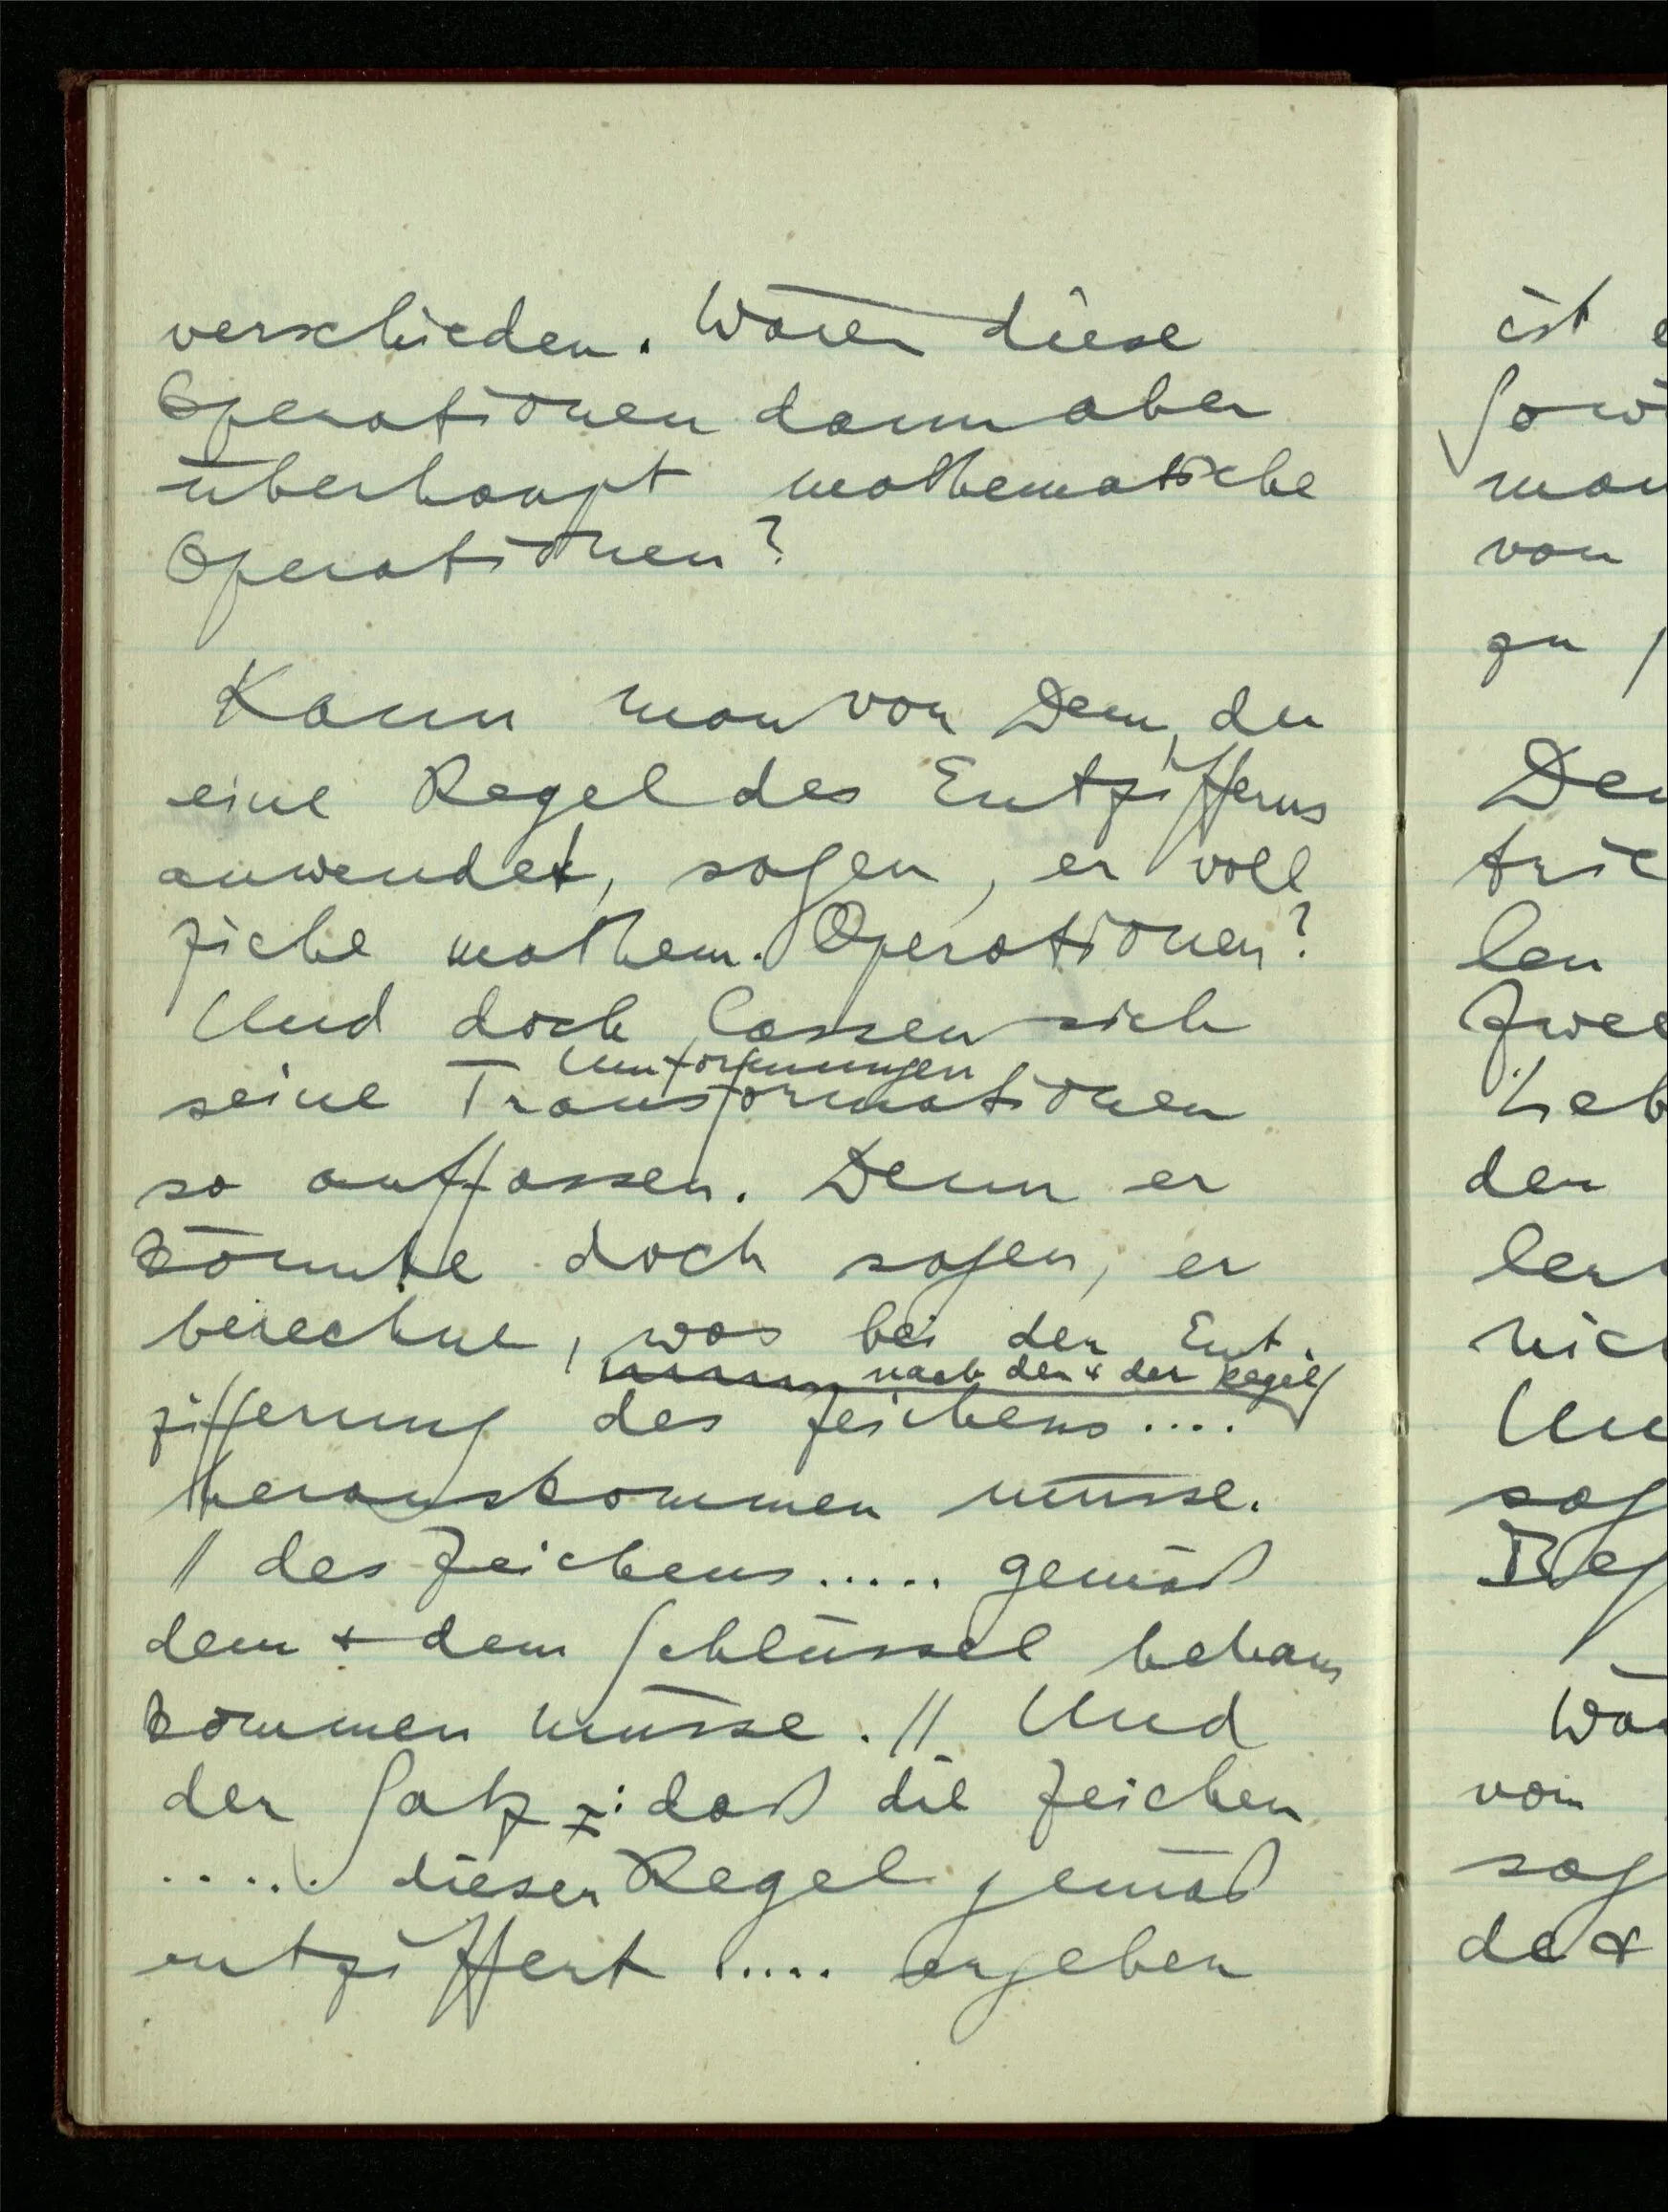 verschieden. Wären diese
Operationen dann aber
überhaupt mathematische
Operationen?
Kann man von Dem, der
eine Regel des Entzifferns
anwendet, sagen, er voll
ziehe mathem. Operationen?
Und doch lassen sich
Umformungen
seine Transformationen
so auffassen. Denn er
könnte doch sagen, er
berechne, was bei der Ent-
nach der & der Regel
zifferung des Zeichens ....
herauskommen müsse.
// des Zeichens ..... gemäß
dem & dem Schlüssel heraus
kommen müsse. // Und
der Satz: daß die Zeichen
..... dieser Regel gemäß
entziffert ..... ergeben
ist
man
von
zu
den
sag